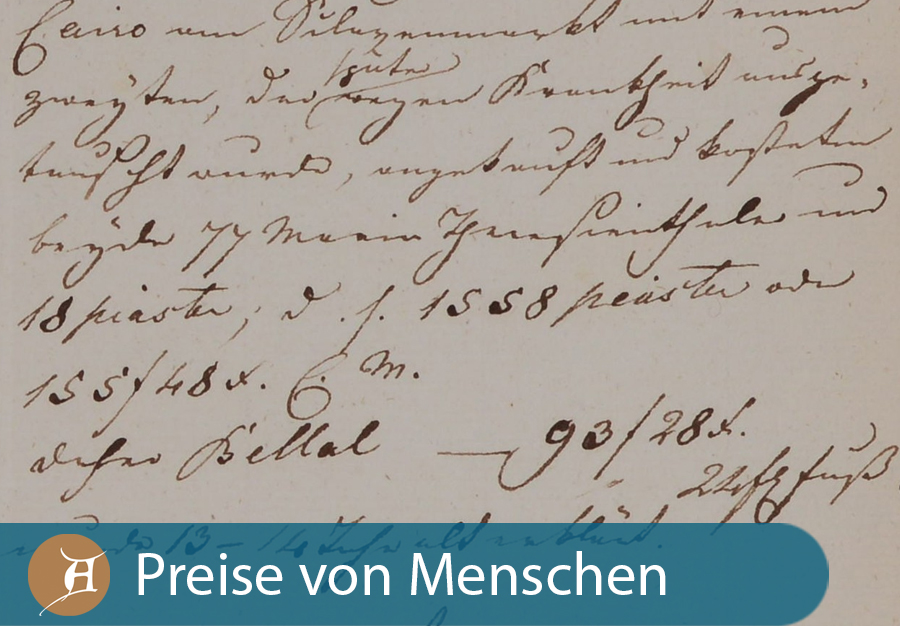 Cairo am Sclavenmarkt mit einem
zweyten, der später wegen Krankheit ausge-
tauscht wurde, angekauft und kosteten
beyde 77 Maria Theresienthaler und
18 piaster, d. s. 1558 piaster oder
155/48 x. C. M.
daher Bellal — 93/28 x.
fuß
wurde 13 – 14 Jahr alt erklärt.
Preise von Menschen